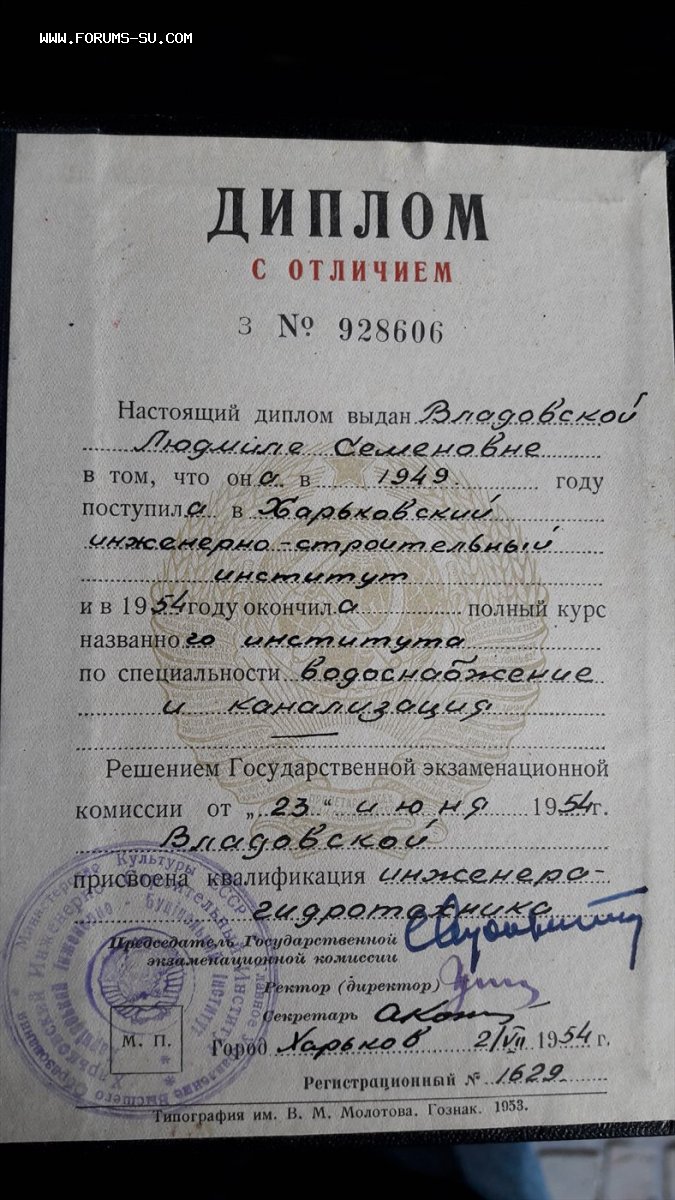 WWW.FORUMS-SU.COM
ДИПЛОМ
С ОТЛИЧИЕМ
З № 928606
Настоящий диплом выдан Владовской
Людмиле Семеновне
в том, что она в 1949 году
поступила в Харьковский
инженерно-строительный
институт
и в 1954 году окончила полный курс
названного института
по специальности водоснабжение
и канализация
Решением Государственной экзаменационной
комиссии от „23“ июня 1954 г.
Владовской
присвоена квалификация инженера-
гидротехника
Председатель Государственной
экзаменационной комиссии
Ректор (директор)
Секретарь
М. П.
Город Харьков 2/VII 1954 г.
Регистрационный № 1629
Типография им. В. М. Молотова. Гознак. 1953.
Министерство Культуры СССР
Главное Управление Высшего Образования
Харьковский Инженерно Строительный Институт